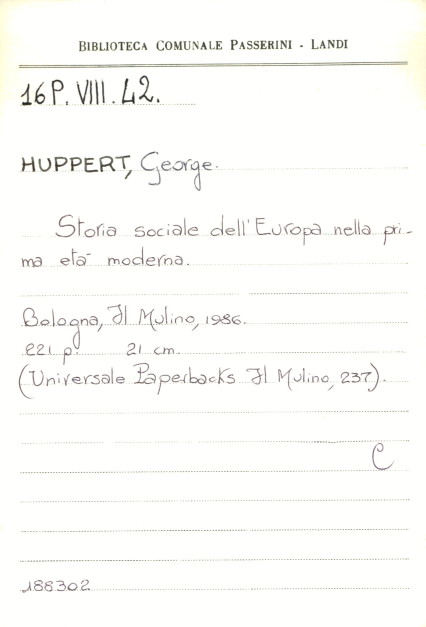 BIBLIOTECA COMUNALE PASSERINI - LANDI
16 P. VIII. 42.
HUPPERT, George.
Storia sociale dell'Europa nella pri-
ma età moderna.
Bologna, Il Mulino, 1986.
221 p. 21 cm.
(Universale Paperbacks Il Mulino, 237).
C
188302